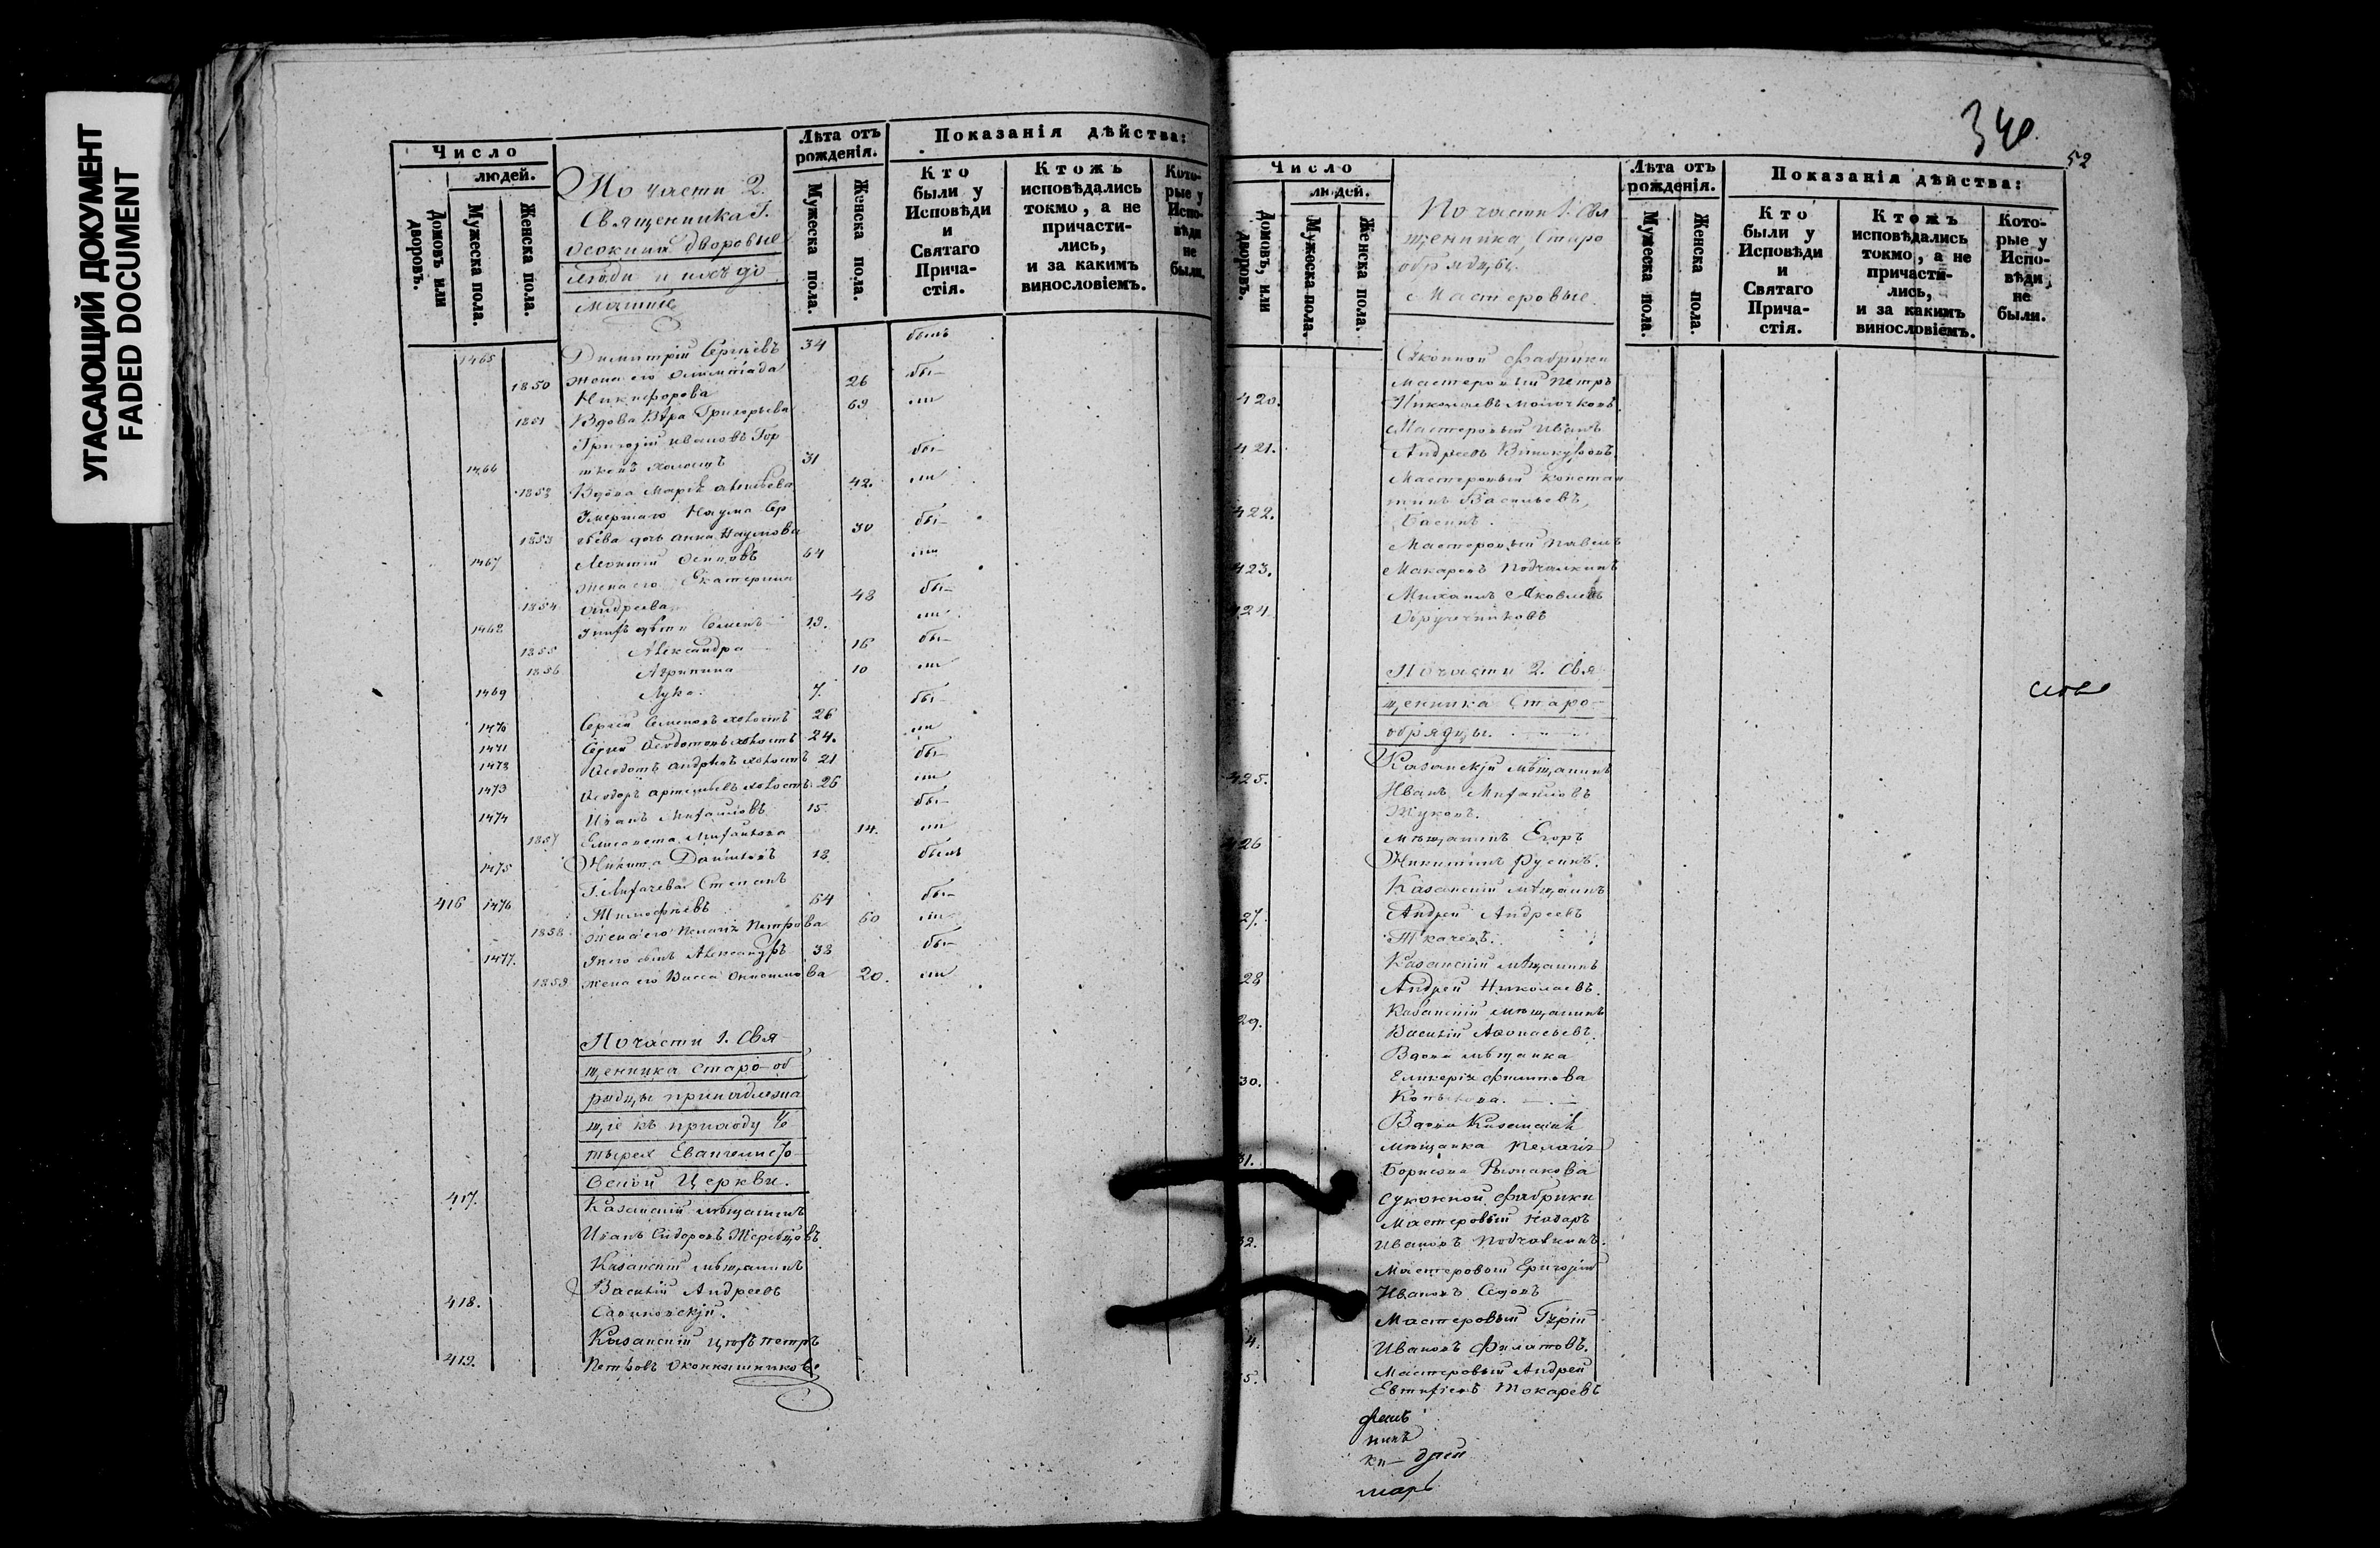 УГАСАЮЩИЙ ДОКУМЕНТ
FADED DOCUMENT
Число
людей.
Домовъ или дворовъ.
Мужеска пола.
Женска пола.
По части 2.
Священника Г.
дворовые
люди и ихъ до
машніе
Лѣта отъ рожденія.
Мужеска пола.
Женска пола.
Показанія дѣйства:
Кто были у Исповѣди и Святаго Прича-стія.
Ктожъ исповѣдались токмо, а не причасти-лись, и за какимъ винословіемъ.
Кото-рые у Испо-вѣди не были.
1465 Димитрій Сергѣевъ 34 былъ
1850 Жена его Олимпіада 26 бы-
Никифорова
1851 Вдова Вѣра Григорьева 69 ли
Григорій Ивановъ Гор
1466 холостъ 31 бы-
1852 Вдова Марія 42. ли
Умершаго Наума Сер
1853 гѣева дочь Анна Наумова 30 бы-
1467 Леонтій Осиповъ 64 ли
Жена его Екатерина
1854 Андреева 48 бы-
1468 У нихъ дѣти Семенъ 19. ли
1855 Александра 16 бы-
1856 Агрипина 10 ли
1469 Лука. 7. бы-
1470 Сергій Семеновъ холостъ 26 ли
1471 Сергій Ѳедотовъ холостъ 24. бы-
1472 Ѳедотъ Андреевъ холостъ 21 ли
1473 Ѳедоръ Артемьевъ холостъ 26 бы-
1474 Иванъ Михайловъ 15. ли
1857 Елисавета Михайлова 14. бы-
1475 Никита Даниловъ 18 ли
Г. Лихачева Степанъ былъ
416 1476 Тимофѣевъ 64 бы-
1858 Жена его Пелагія Петрова 60 ли
1477. У него сынъ Александръ 38 бы-
1859 Жена его Васса 20. ли
По части 1. Свя
щенника Старо-об
рядцы принадлежа
щіе къ приходу Че
тырех Евангелисто
вской Церкви.
417. Казанскій мѣщанинъ
Иванъ Сидоровъ Жеребцовъ
Казанскій мѣщанинъ
Василій Андреевъ
418. Савиновскій.
Казанскій цехъ Петръ
419. Петровъ Оконнишниковъ
340.
52
Число
людей.
Домовъ, или дворовъ.
Мужеска пола.
Женска пола.
По части 1. Свя
щенника, Старо
обрядцы.
Мастеровые.
Лѣта отъ рожденія.
Мужеска пола.
Женска пола.
Показанія дѣйства:
Кто были у Исповѣди и Святаго Прича-стія.
Ктожъ исповѣдались токмо, а не причасти-лись, и за какимъ винословіемъ.
Кото-рые у Испо-вѣди, не были.
Суконной фабрики
Мастеровый Петръ
420. Николаевъ Молочковъ.
Мастеровый Иванъ
421. Андреевъ Винокуровъ
Мастеровый Констан
тинъ Васильевъ,
422. Басинъ.
Мастеровый Павелъ
423. Макаровъ Подчалкинъ
Михаилъ Яковлевъ
424 Обручниковъ
По части 2. Свя
щенника Старо-
обрядцы.
Казанскій мѣщанинъ
425. Иванъ Михайловъ
Жуковъ.
426 Мѣщанинъ Егоръ
Никитинъ Русинъ.
Казанскій мѣщанинъ
27. Андрей Андреевъ
Ткачевъ.
Казанскій мѣщанинъ
28 Андрей Николаевъ.
Казанскій мѣщанинъ
29. Василій Аѳонасьевъ.
Вдова мѣщанка
30. Гликерія Филипова
Вдова Казанская
мѣщанка Пелагія
31. Борисова Рыбакова
Суконной фабрики
Мастеровый Назаръ
32. Ивановъ Подчалкинъ.
Мастеровый Григорій
Ивановъ Седовъ
Мастеровый Гурій
4. Ивановъ Филатовъ.
5. Мастеровый Андрей
Евтифіевъ Токаревъ